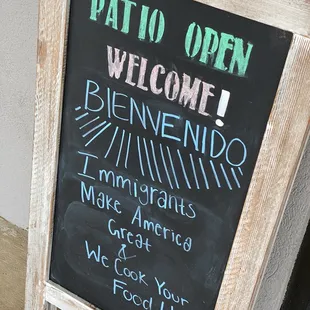 PATIO OPEN
WELCOME!
BIENVENIDO
Immigrants
Make America
Great
&
We Cook Your
Food